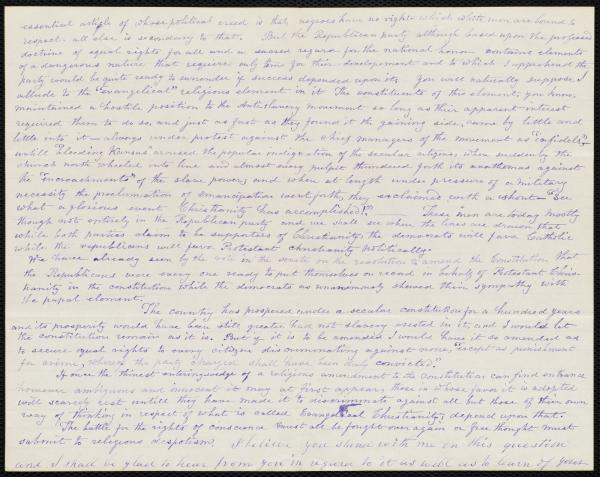 essential article of whose political creed is that negroes have no rights which white men are bound to
respect. all else is secondary to that. But the Republican party although based upon the professed
doctrine of equal rights for all and a sacred regard for the national honor contains elements
of a dangerous nature that require only time for their development and to which I apprehend the
party would be quite ready to surrender if success depended upon it. You will naturally suppose I
allude to the "Evangelical" religious element in it. The constituents of this element, you know,
maintained a hostile position to the Antislavery movement so long as their apparent interest
required them to do so, and just as fast as they found it the gaining side, came by little and
little into it – always under protest against the chief managers of the movement as "infidels" –
untill "Bleeding Kansas" aroused the popular indignation of the secular citizens when suddenly the
church north wheeled into line and almost every pulpit thundered forth its anathemas against
the "encroachments" of the slave power, and when at length under pressure of a military
necessity the proclamation of emancipation went forth, they exclaimed with a shout – "See
what a glorious event Christianity has accomplished!" These men are today mostly
though not entirely in the Republican party and we shall see when the lines are drawn that
while both parties claim to be supporters of Christianity, the democrats will favor Catholic
while the republicans will favor Protestant christianity politically.
We have already seen by the vote in the senate on the resolution to amend the Constitution that
the Republicans were every one ready to put themselves on record in behalf of Protestant Chris-
tianity in the constitution while the democrats as unanimously shewed their sympathy with
the papal element.
The country has prospered under a secular constitution for a hundred years
and its prosperity would have been still greater had not slavery existed in it, and I would let
the constitution remain as it is. But if it is to be amended I would have it so amended as
to secure equal rights to every citizen discriminating against none, "except as punishment
for crime, whereof the party shall have been duly convicted."
If once the thinest entering wedge of a religious amendment to the Constitution can find entrance
however ambiguous and innocent it may at first appear, those in whose favor it is adopted
will scarcely rest untill they have made it to discriminate against all but those of their own
way of thinking in respect of what is called Evangelical Christianity, depend upon that.
The battle for the rights of conscience must all be fought over again or free thought must
submit to religious despotism. I believe you stand with me on this question
and I shall be glad to hear from you in regard to it as well as to learn of your